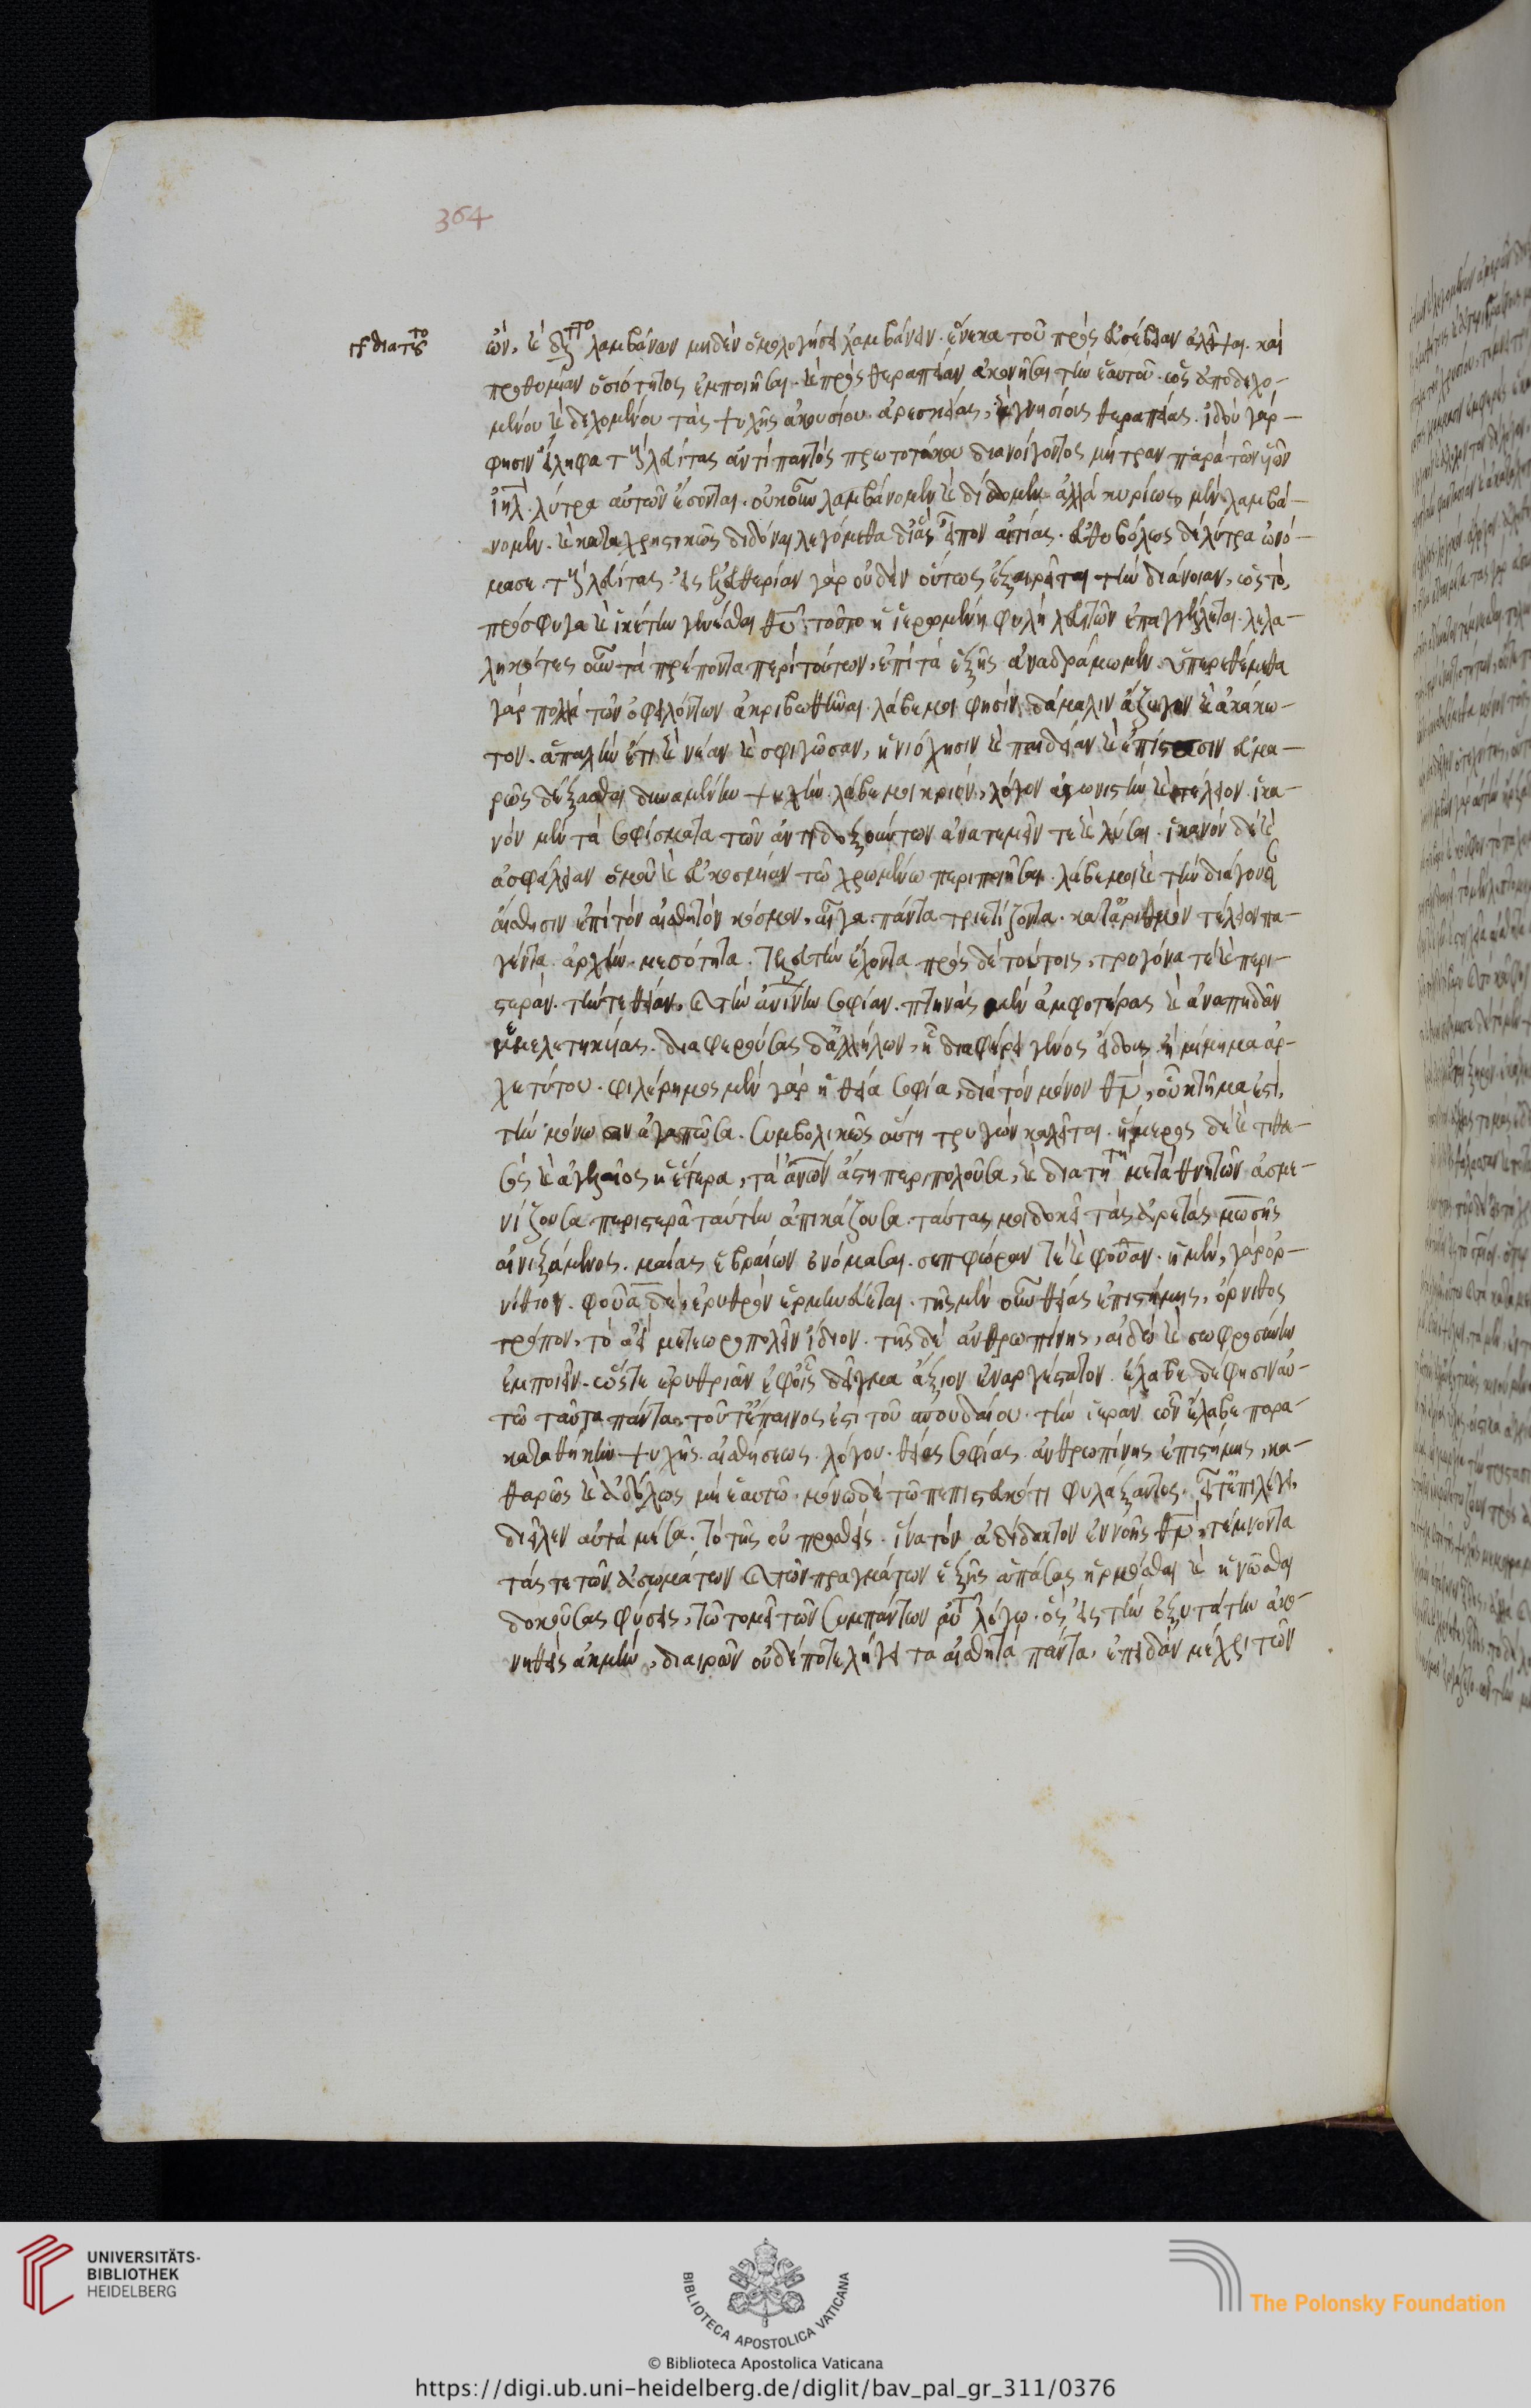 364
γρ διὰ τοῦτο
ὤν, καὶ διὰ τὸ λαμβάνων μηδὲν ὁμολογήσει λαμβάνειν. ἕνεκα τοῦ πρὸς εὐσέβειαν ἀλεῖψαι. καὶ
προθυμίαν ὁσιότητος ἐμποιῆσαι. καὶ πρὸς θεραπείαν ἀκονῆσαι τὴν ἑαυτοῦ. ὡς ἀποδεχο-
μένου καὶ δεχομένου τὰς ψυχῆς ἀκουσίου ἀρεσκείας, καὶ γνησίους θεραπείας. ἰδοὺ γάρ
φησιν εἴληφα τοὺς λευίτας ἀντὶ παντὸς πρωτοτόκου διανοίγοντος μήτραν παρὰ τῶν υἱῶν
ἰηλ. λύτρα αὐτῶν ἔσονται. οὐκοῦν λαμβάνομεν καὶ δίδομεν. ἀλλὰ κυρίως μὲν λαμβά-
νομεν. καὶ καταχρηστικῶς διδόναι λεγόμεθα δι' ἃς εἶπον αἰτίας. εὐθυβόλως δὲ λύτρα ὠνό-
μασε τοὺς λευίτας. εἰς ἐλευθερίαν γὰρ οὐδὲν οὕτως ἐξαιρεῖται τὴν διάνοιαν, ὡς τὸ,
πρόσφυγα καὶ ἱκέτην γενέσθαι θυ. τοῦτο ἡ ἱερωμένη φυλὴ λευιτῶν ἐπαγγέλλεται. λελα-
ληκότες οὖν τὰ πρέποντα περὶ τούτων, ἐπὶ τὰ ἑξῆς ἀναδράμωμεν. ὑπερεθέμεθα
γὰρ πολλὰ τῶν ὀφειλόντων ἀκριβωθῆναι. λάβε μοι φησὶν, δάμαλιν ἄζυγον καὶ ἀκάκω-
τον. ἁπαλὴν ἔτι καὶ νέαν καὶ σφριγῶσαν, ἡνιόχησιν καὶ παιδείαν καὶ ἐπίστασιν εὐμα-
ρῶς δέξασθαι δυναμένην ψυχὴν. λάβε μοι κριὸν, λόγον ἀγωνιστὴν καὶ τέλειον. ἱκα-
νὸν μὲν τὰ σοφίσματα τῶν ἀντιδοξούντων ἀνατεμεῖν τε καὶ λῦσαι. ἱκανὸν δὲ καὶ
ἀσφάλειαν ὁμοῦ καὶ εὐκοσμίαν τῷ χρωμένῳ περιποιῆσαι. λάβε μοι καὶ τὴν διάγουσαν
αἴσθησιν ἐπὶ τὸν αἰσθητὸν κόσμον, αἶγα. πάντα τριετίζοντα. κατ' ἀριθμὸν τέλειον πα-
γέντα ἀρχὴν. μεσότητα. τελευτὴν ἔχοντα. πρὸς δὲ τούτοις, τρυγόνα τε καὶ περι-
στεράν. τήν τε θείαν, καὶ τὴν ἀνίνην σοφίαν. πτηνὰς μὲν ἀμφοτέρας καὶ ἀναπηδᾶν
μεμελετηκυίας. διαφερούσας δ' ἀλλήλων, ᾗ διαφέρει γένος εἴδους. ἢ μίμημα ἀρ-
χετύπου. φιλέρημος μὲν γὰρ ἡ θεία σοφία, διὰ τὸν μόνον θν, οὗ κτῆμα ἐστὶ,
τὴν μόνωσιν ἀγαπῶσα. συμβολικῶς αὕτη τρυγὼν καλεῖται. ἥμερος δὲ καὶ τιθα-
σὸς καὶ ἀγελαῖος ἡ ἑτέρα, τὰ ἀνων ἄστη περιπολοῦσα, καὶ διαίτῃ τῇ μετὰ θνητῶν ἀσμε-
νίζουσα. περιστερᾷ ταύτην ἀπεικάζουσα. ταύτας μοι δοκεῖ τὰς ἀρετὰς μωσῆς
αἰνιξάμενος. μαίας ἑβραίων ὀνομάσαι. σεπφώραν τε καὶ φουὰν. ἡ μὲν, γὰρ ὀρ-
νίθιον. φουὰ δὲ, ἐρυθρὸν ἑρμηνεύεται. τῆς μὲν οὖν θείας ἐπιστήμης, ὄρνιθος
τρόπον, τὸ ἀεὶ μετεωροπολεῖν ἴδιον. τῆς δὲ ἀνθρωπίνης, αἰδῶ καὶ σωφροσύνην
ἐμποιεῖν. ὥστε ἐρυθριᾶν ἐφ' οἷς δεῖγμα ἄξιον ἐναργέστατον. ἔλαβε δὲ φησιν αὐ-
τῷ ταῦτα πάντα. τοῦτ' ἔπαινος ἐστὶ τοῦ σπουδαίου. τὴν ἱερὰν ὧν ἔλαβε παρα-
καταθήκην. ψυχῆς. αἰσθήσεως. λόγου. θείας σοφίας. ἀνθρωπίνης ἐπιστήμης, κα-
θαρῶς καὶ ἀδόλως μὴ ἑαυτῷ. μόνῳ δὲ τῷ πεπιστευκότι φυλάξαντος. εἶτ' ἐπιλέγει,
διεῖλεν αὐτὰ μέσα. τὸ τίς οὐ προσθείς. ἵνα τὸν ἀδίδακτον ἐννοῇς θν, τέμνοντα
τάς τε τῶν σωμάτων καὶ τῶν πραγμάτων ἑξῆς ἁπάσας ἡρμόσθαι καὶ ἡνῶσθαι
δοκούσας φύσεις, τῷ τομεῖ τῶν συμπάντων αὐτοῦ λόγῳ. ὃς εἰς τὴν ὀξυτάτην ἀκο-
νηθεὶς ἀκμὴν, διαιρῶν οὐδέποτε λήγει τὰ αἰσθητὰ πάντα, ἐπειδὰν μέχρι τῶν
UNIVERSITÄTS-
BIBLIOTHEK
HEIDELBERG
BIBLIOTECA APOSTOLICA VATICANA
The Polonsky Foundation
© Biblioteca Apostolica Vaticana
https://digi.ub.uni-heidelberg.de/diglit/bav_pal_gr_311/0376